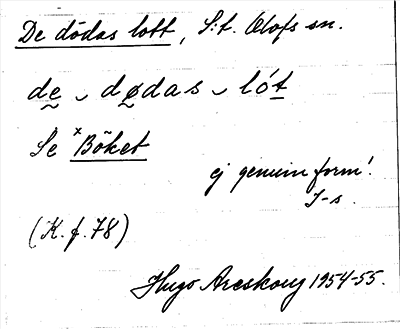 De dödas lott, S:t. Olofs sn.
de ‿ dødas ‿ lót
Se ˣBöket
ej genuin form!
J-s.
(K. f. 78)
Hugo Areskoug 1954-55.